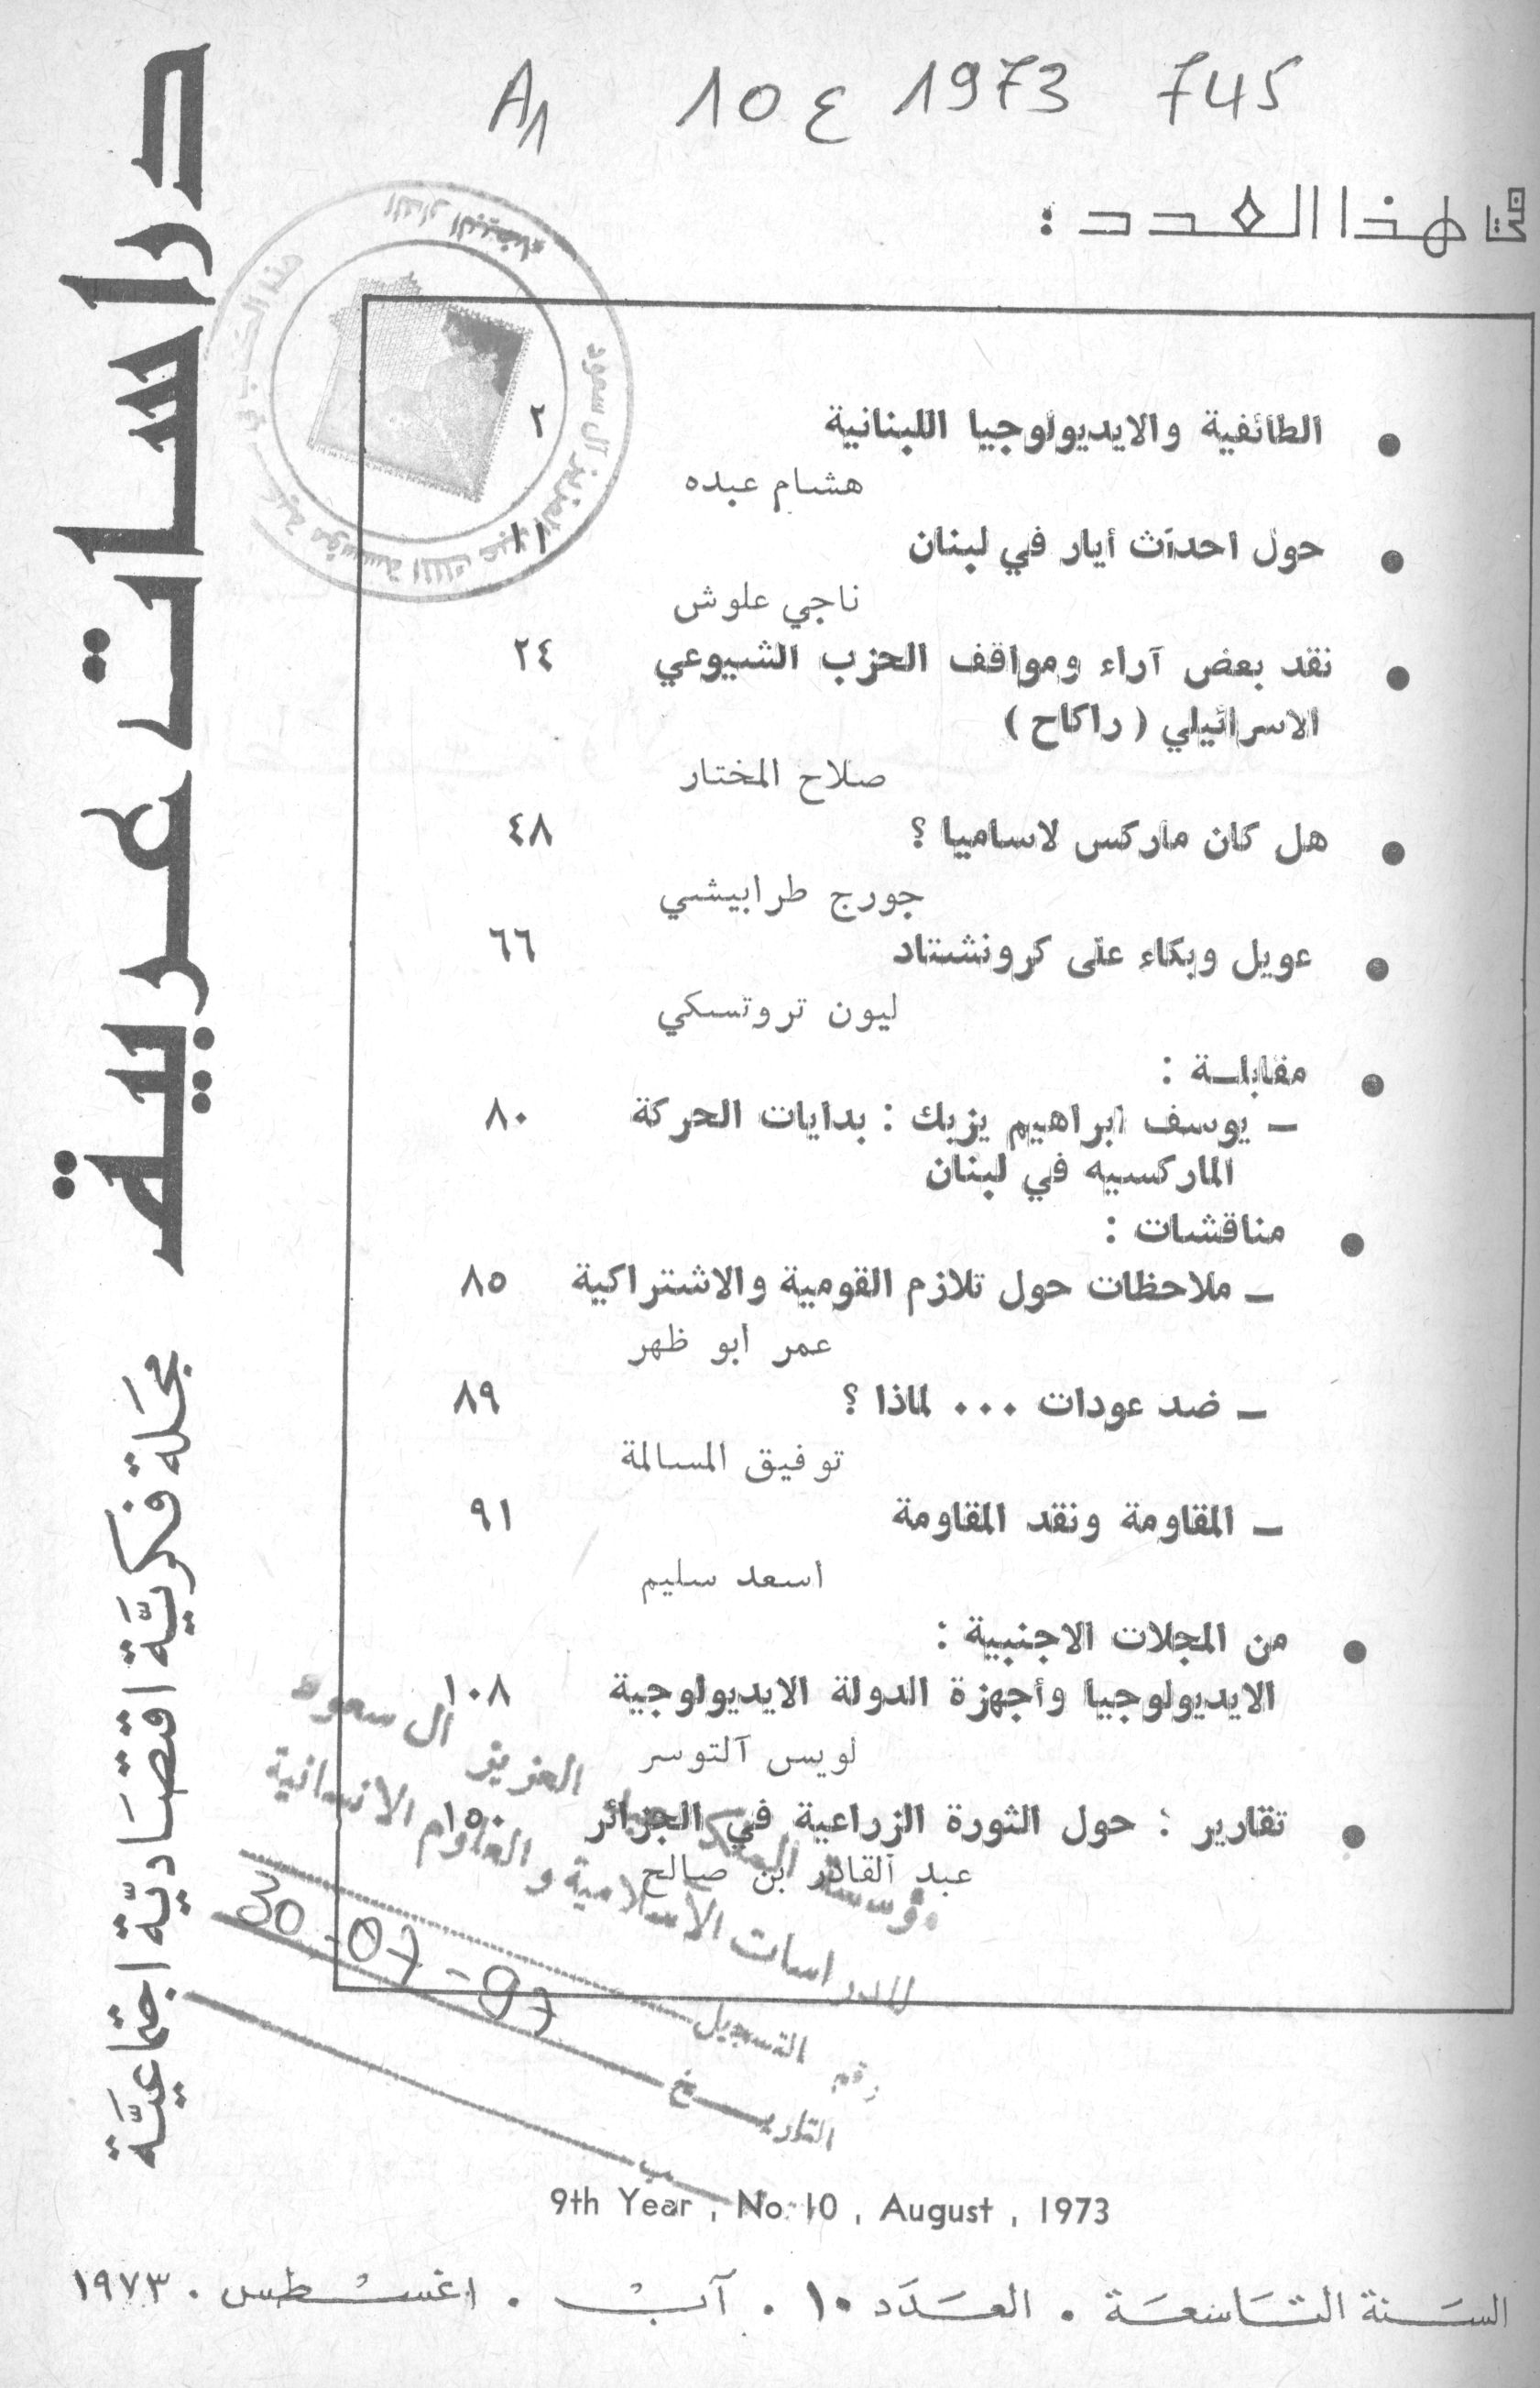 A1 10 ع 1973 745
في هذا العدد :
دراسات عربية
مجلة فكرية اقتصادية اجتماعية
الدار البيضاء
مؤسسة الملك عبد العزيز آل سعود
● الطائفية والايديولوجيا اللبنانية ٢
هشام عبده
● حول احداث أيار في لبنان ١١
ناجي علوش
● نقد بعض آراء ومواقف الحزب الشيوعي ٢٤
الاسرائيلي ( راكاح )
صلاح المختار
● هل كان ماركس لاساميا ؟ ٤٨
جورج طرابيشي
● عويل وبكاء على كرونشتاد ٦٦
ليون تروتسكي
● مقابلة :
– يوسف ابراهيم يزبك : بدايات الحركة ٨٠
الماركسيه في لبنان
● مناقشات :
– ملاحظات حول تلازم القومية والاشتراكية ٨٥
عمر ابو ظهر
– ضد عودات ٠٠٠ لماذا ؟ ٨٩
توفيق المسالمة
– المقاومة ونقد المقاومة ٩١
اسعد سليم
● من المجلات الاجنبية :
الايديولوجيا وأجهزة الدولة الايديولوجية ١٠٨
لويس آلتوسر
● تقارير : حول الثورة الزراعية في الجزائر ١٥٠
عبد القادر بن صالح
مؤسسة الملك عبد العزيز آل سعود
للدراسات الاسلامية والعلوم الانسانية
رقم التسجيل
التاريخ
9th Year , No. 10 , August , 1973
السنة التاسعة ٠ العدد ١٠ ٠ آب ٠ اغسطس ٠ ١٩٧٣